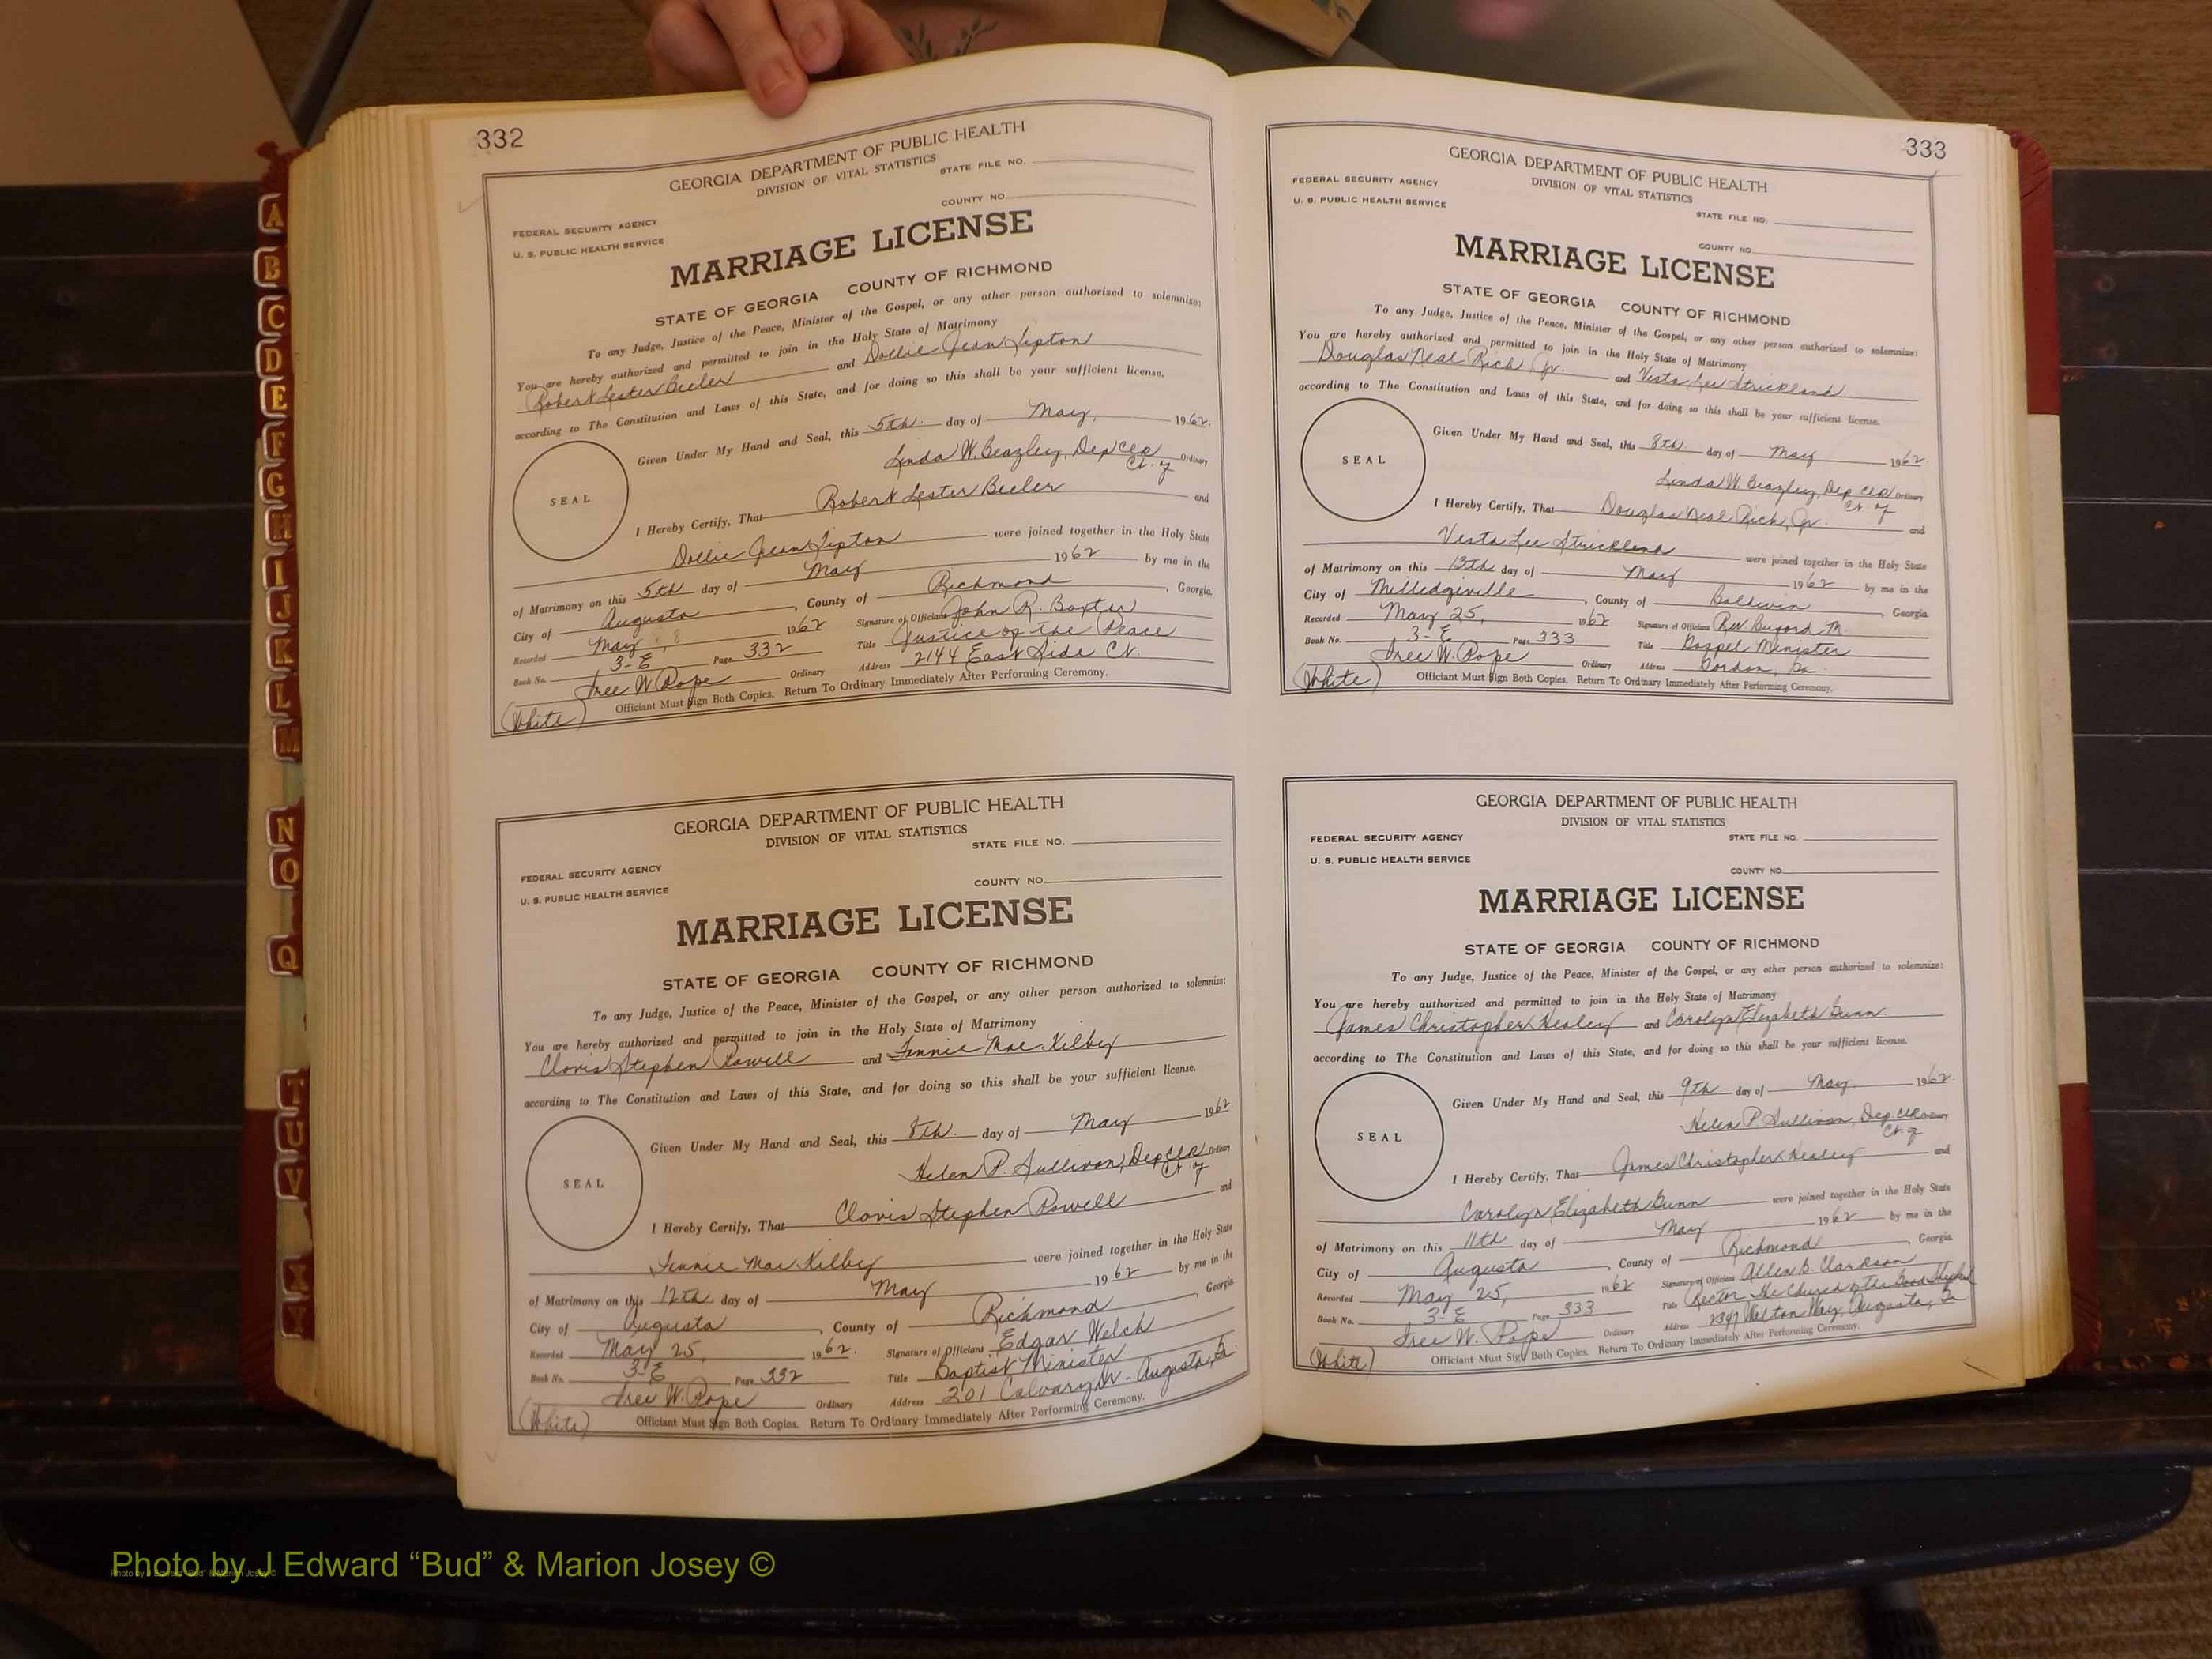 332
GEORGIA DEPARTMENT OF PUBLIC HEALTH
DIVISION OF VITAL STATISTICS
STATE FILE NO.
COUNTY NO.
FEDERAL SECURITY AGENCY
U. S. PUBLIC HEALTH SERVICE
MARRIAGE LICENSE
STATE OF GEORGIA COUNTY OF RICHMOND
To any Judge, Justice of the Peace, Minister of the Gospel, or any other person authorized to solemnize:
You are hereby authorized and permitted to join in the Holy State of Matrimony
Robert Lester Beeler and Dollie Jean Lipton
according to The Constitution and Laws of this State, and for doing so this shall be your sufficient license.
Given Under My Hand and Seal, this 5th day of May, 1962.
SEAL
Linda W. Beazley, Dep Clk Ordinary
Ct. of
I Hereby Certify, That Robert Lester Beeler and
Dollie Jean Lipton were joined together in the Holy State
of Matrimony on this 5th day of May 1962 by me in the
City of Augusta, County of Richmond, Georgia.
Recorded May 8 1962 Signature of Officiant John R. Baxter
Book No. 3-E Page 332 Title Justice of the Peace
Tree W. Pope Ordinary Address 2144 East Side Ct.
(White) Officiant Must Sign Both Copies. Return To Ordinary Immediately After Performing Ceremony.
GEORGIA DEPARTMENT OF PUBLIC HEALTH
DIVISION OF VITAL STATISTICS
STATE FILE NO.
FEDERAL SECURITY AGENCY
COUNTY NO.
U. S. PUBLIC HEALTH SERVICE
MARRIAGE LICENSE
STATE OF GEORGIA COUNTY OF RICHMOND
To any Judge, Justice of the Peace, Minister of the Gospel, or any other person authorized to solemnize:
You are hereby authorized and permitted to join in the Holy State of Matrimony
Clovis Stephen Powell and Fannie Mae Kilby
according to The Constitution and Laws of this State, and for doing so this shall be your sufficient license.
Given Under My Hand and Seal, this 8th. day of May 1962.
SEAL
Helen P. Sullivan, Dep Clk Ordinary
Ct. of
I Hereby Certify, That Clovis Stephen Powell and
Mae Kilby were joined together in the Holy State
of Matrimony on this 12th day of May 1962 by me in the
City of Augusta, County of Richmond, Georgia
Recorded May 25, 1962. Signature of Officiant Edgar Welch
Book No. 3-E Page 332 Title Baptist Minister
Tree W. Pope Ordinary Address 201 Calvary Dr - Augusta, Ga.
(White) Officiant Must Sign Both Copies. Return To Ordinary Immediately After Performing Ceremony.
333
GEORGIA DEPARTMENT OF PUBLIC HEALTH
DIVISION OF VITAL STATISTICS
FEDERAL SECURITY AGENCY
U. S. PUBLIC HEALTH SERVICE
STATE FILE NO.
COUNTY NO.
MARRIAGE LICENSE
STATE OF GEORGIA COUNTY OF RICHMOND
To any Judge, Justice of the Peace, Minister of the Gospel, or any other person authorized to solemnize:
You are hereby authorized and permitted to join in the Holy State of Matrimony
Douglas Neal Rich Jr. and Vesta Lee Strickland
according to The Constitution and Laws of this State, and for doing so this shall be your sufficient license.
Given Under My Hand and Seal, this 8th day of May 1962.
SEAL
Linda W. Beazley, Dep Clk Ordinary
Ct. of
I Hereby Certify, That Douglas Neal Rich, Jr. and
Vesta Lee Strickland were joined together in the Holy State
of Matrimony on this 13th day of May 1962 by me in the
City of Milledgeville, County of Baldwin, Georgia.
Recorded May 25, 1962 Signature of Officiant Rev. Buford M.
Book No. 3-E Page 333 Title Gospel Minister
Tree W. Pope Ordinary Address Gordon, Ga.
(White) Officiant Must Sign Both Copies. Return To Ordinary Immediately After Performing Ceremony.
GEORGIA DEPARTMENT OF PUBLIC HEALTH
DIVISION OF VITAL STATISTICS
FEDERAL SECURITY AGENCY STATE FILE NO.
U. S. PUBLIC HEALTH SERVICE
COUNTY NO.
MARRIAGE LICENSE
STATE OF GEORGIA COUNTY OF RICHMOND
To any Judge, Justice of the Peace, Minister of the Gospel, or any other person authorized to solemnize:
You are hereby authorized and permitted to join in the Holy State of Matrimony
James Christopher Healey and Carolyn Elizabeth Gunn
according to The Constitution and Laws of this State, and for doing so this shall be your sufficient license.
Given Under My Hand and Seal, this 9th day of May 1962
SEAL
Helen P. Sullivan, Dep. Clk Ordinary
Ct. of
I Hereby Certify, That James Christopher Healey and
Carolyn Elizabeth Gunn were joined together in the Holy State
of Matrimony on this 11th day of May 1962 by me in the
City of Augusta, County of Richmond, Georgia
Recorded May 25, 1962 Signature of Officiant Allen B. Clarkson
Book No. 3-E Page 333 Title Rector The Church of the Good Shepherd
Tree W. Pope Ordinary Address Walton Way, Augusta, Ga
(White) Officiant Must Sign Both Copies. Return To Ordinary Immediately After Performing Ceremony.
A
B
C
D
E
F
G
H
I
J
K
L
M
N
O
Q
T
U
V
X
Y
Photo by J Edward “Bud” & Marion Josey ©
Photo by J Edward “Bud” & Marion Josey ©